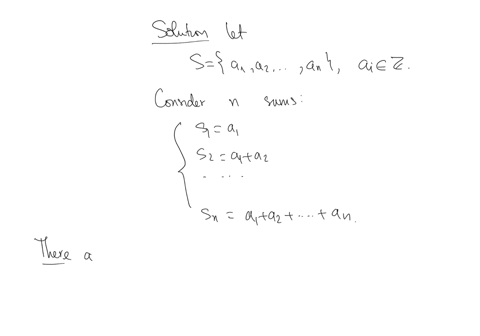 Solution let
S={a₁, a₂..., aₙ}, aᵢ∈ℤ.
Connder n sums:
S₁ = a₁
S₂ = a₁+a₂
. ...
Sₙ = a₁+a₂+...+aₙ.
There a